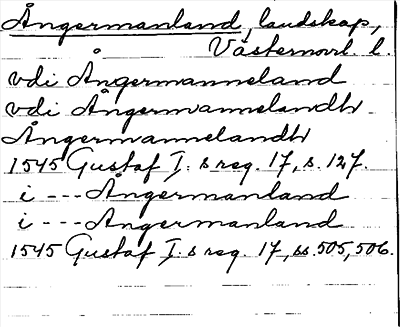 Ångermanland, landskap,
Västernorrl. l.
vdi Ångermanneland
vdi Ångermannelandh
Ångermannelandh
1545 Gustaf I. s reg. 17, s. 127.
i --- Ångermanland
i --- Ångermanland
1545 Gustaf I. s reg. 17, ss. 505, 506.